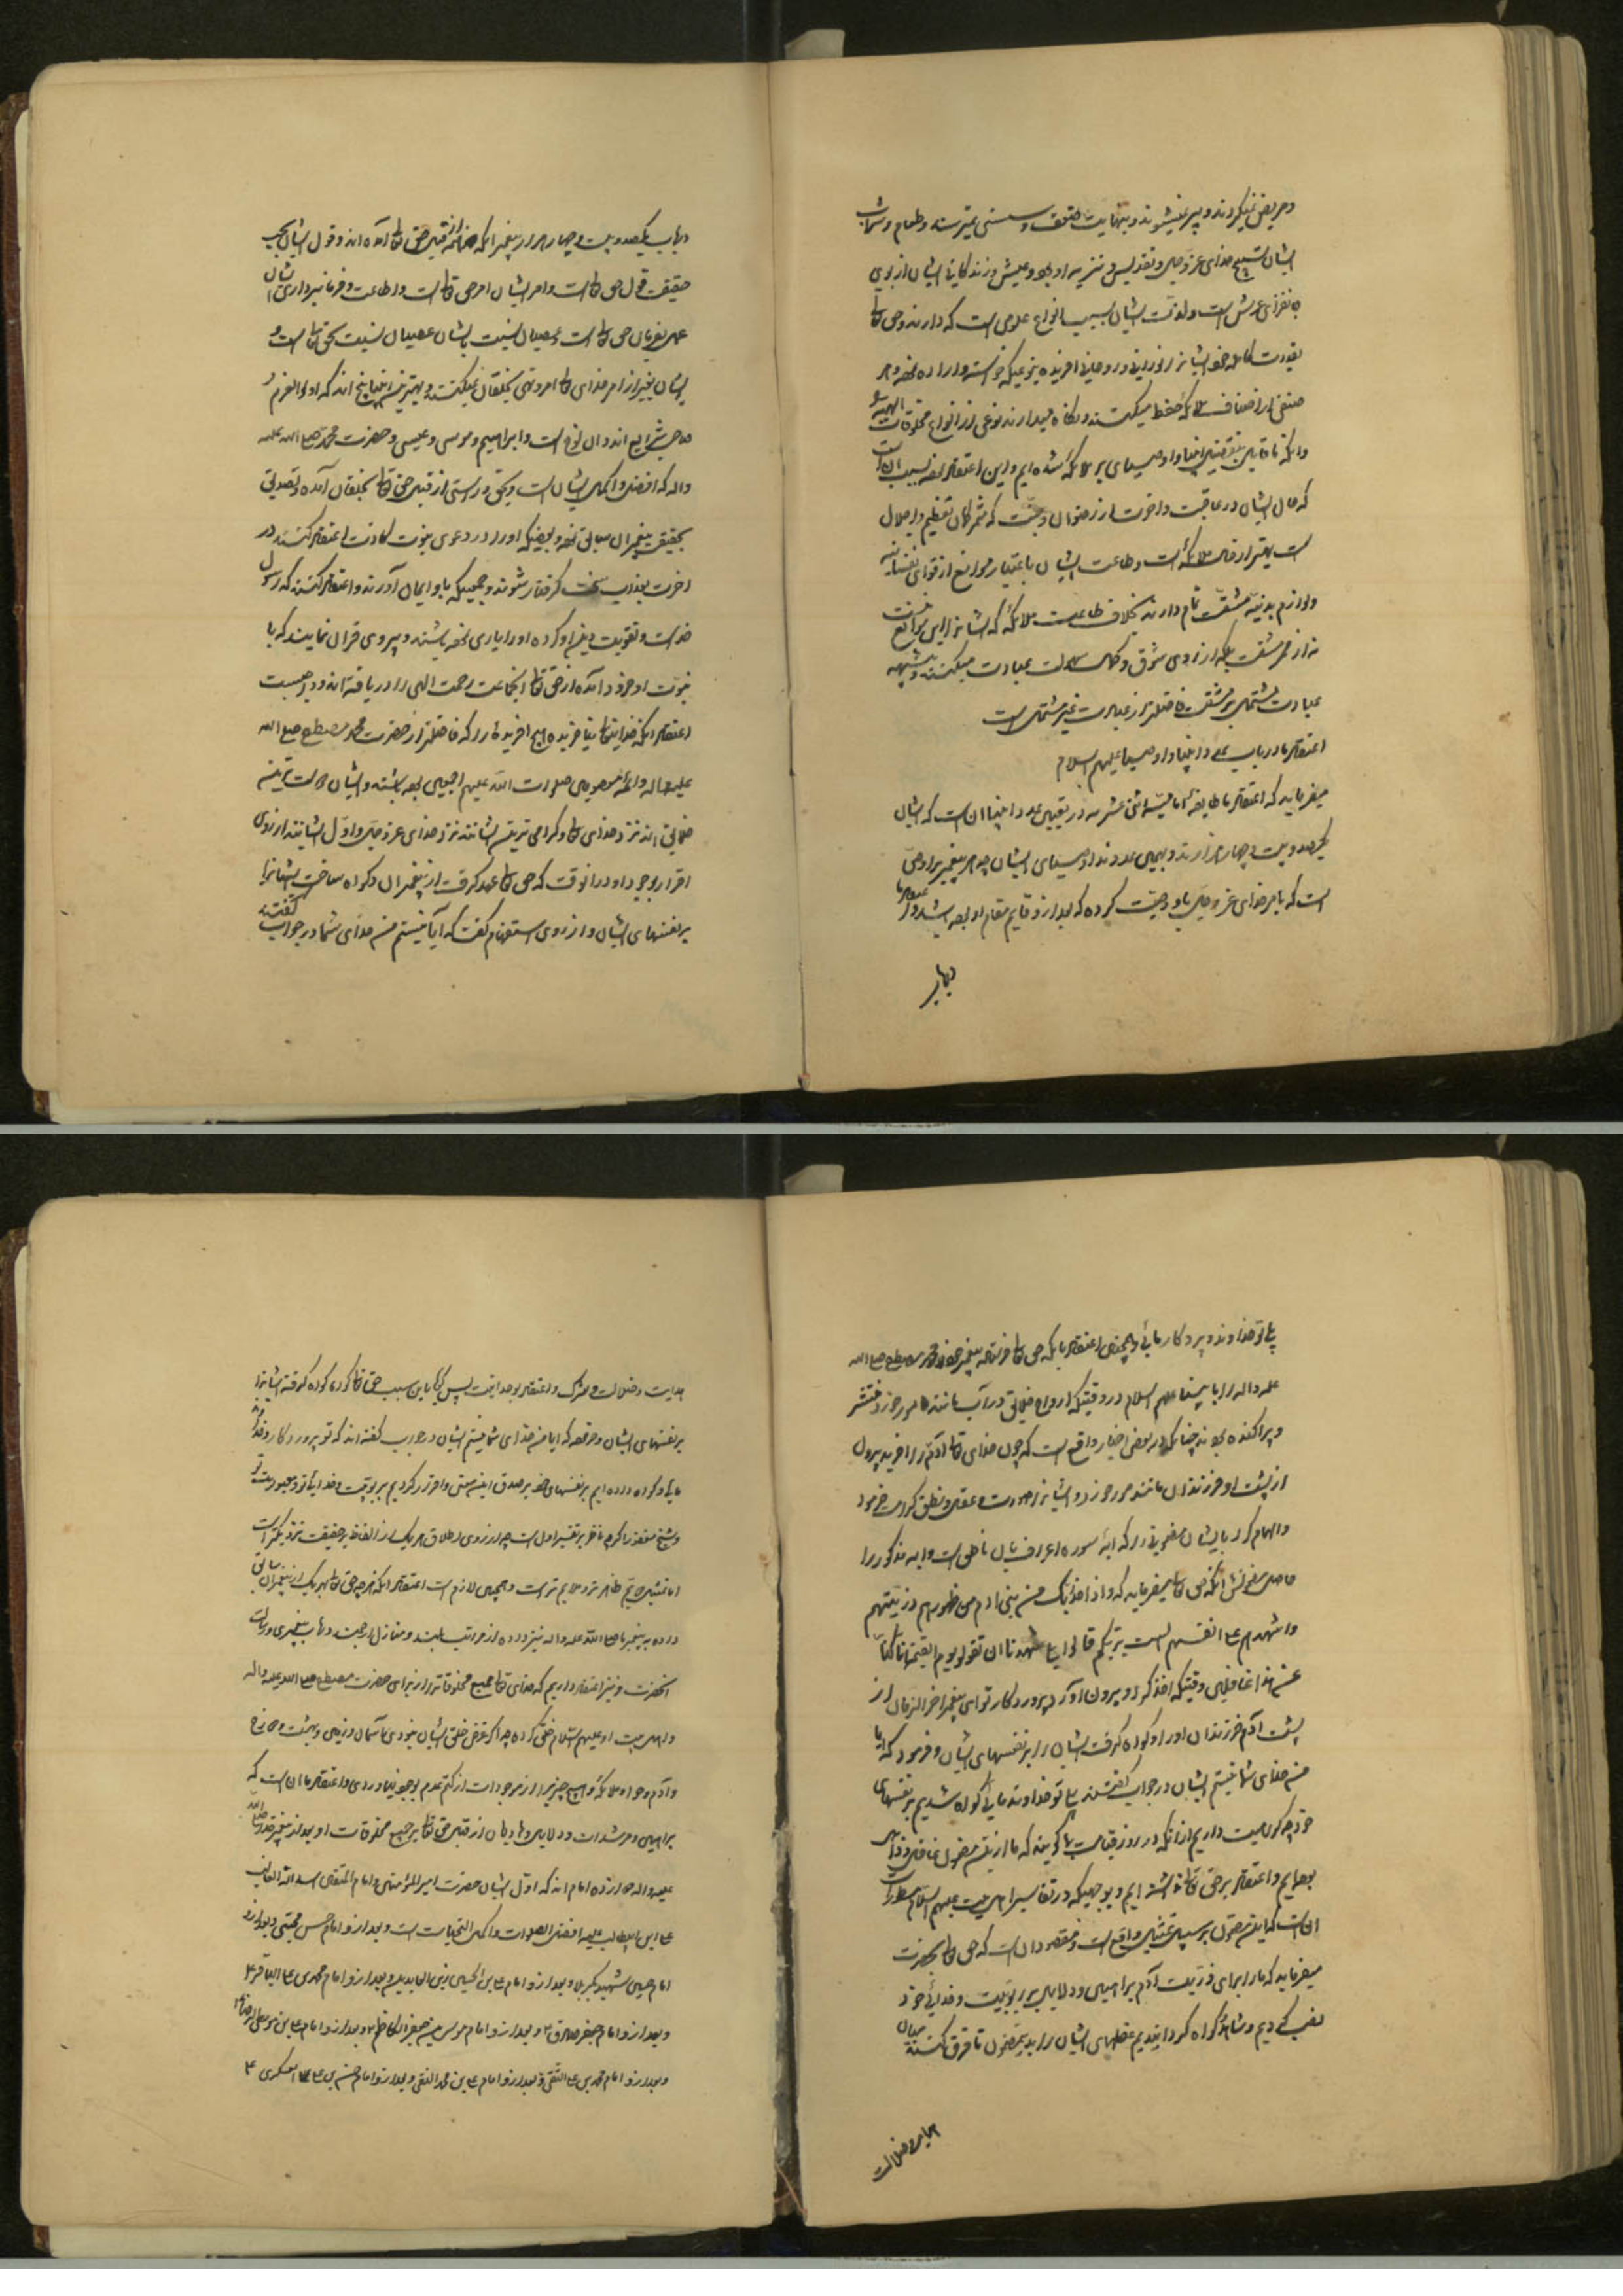 و مریض نمیگردند و پیر نمیشوند و بنهایت ضعف و سستی نمیرسند و طعام و شراب
ایشان تسبیح خدای عز و جل و تقدیس و تنزیه او بود و عیش و زندگانی ایشان از بوی
عرش است و لذت ایشان بسبب انواع علومی است که دارند و حق تعالی
بقدرت کامله خود ایشانرا نورانی و روحانی آفریده بنوعیکه خواسته و اراده نموده و هر
صنفی از اصناف ملائکه حفظ میکنند و نگاه میدارند نوعی از انواع مخلوقات الهیه
و آنکه ما قایل بتفضیل انبیا و اوصیای بر ملائکه شده ایم و این اعتقاد بسبب آنست
که حال ایشان در عاقبت و آخرت از رضوان و جنت که تعظیم و اجلال
است بهتر از حال ملائکه است و طاعت ایشان باعتبار موانع از قوای نفسانیه
و لوازم بدنیه مشقت تمام دارند بخلاف طاعت ملائکه که ایشانرا این موانع نیست
نه از مشقت بلکه از روی شوق و سهولت عبادت میکنند
عبادت مشتمل بر مشقت فاضلتر از عبادت غیر مشتمل است
اعتقاد ما در باب عدد انبیا و اوصیا علیهم السلام
میفرماید که اعتقاد ما طایفه امامیه اثنی عشریه در تعیین عدد انبیا آن است که ایشان
یکصد و بیست و چهار هزارند و بهمین عددند اوصیای ایشان چه هر پیغمبریرا وصی
است که بامر خدای عز و جل باو وصیت کرده که بعد از او قایم مقام او بوده باشد و اعتقاد ما
در باب
در باب یکصد و بیست و چهار هزار پیغمبر آنکه همه از قبل حق تعالی آمده اند و قول ایشان بحسب
حقیقت قول حق تعالی است و امر ایشان امر حق تعالی است و اطاعت و فرمانبرداری ایشان
عین فرمان حق تعالی است و عصیان نسبت بایشان عصیان نسبت بحق تعالی است و
ایشان بغیر از امر خدای تعالی امر و نهی بخلقان نمیکنند و بهترین انبیا پنج اند که اولوا العزم و
صاحب شرایع اند و آن نوح است و ابراهیم و موسی و عیسی و حضرت محمد صلی الله علیه
و اله که افضل و اکمل ایشان است و بحق و راستی از قبل حق تعالی بخلقان آمده و تصدیق
بحقیقت پیغمبران سابق نموده و بعضیکه او را در دعوی نبوت کاذب اعتقاد کنند در
آخرت بعذاب سخت گرفتار شوند و جمعیکه باو ایمان آورند و اعتقاد کنند که رسول
خداست و تقویت دین او کرده او را یاری نموده باشند و پیروی قرآن نمایند که با
نبوت او فرود آمده از حق تعالی آنجماعت رحمت الهی را دریافته اند و واجبست
اعتقاد آنکه خدایتعالی نیافریده هیچ آفریده را که فاضلتر از حضرت محمد مصطفی صلی الله
علیه و اله و ائمه معصومین صلوات الله علیهم اجمعین بوده باشند و ایشان دوست ترین
خلایق اند نزد خدای تعالی و گرامی ترین ایشانند نزد خدای عز و جل و اول ایشانند از روی
اقرار بوجود او در آنوقت که حق تعالی عهد گرفت از پیغمبران و گواه ساخت ایشانرا
بر نفسهای ایشان و از روی استفهام گفت که آیا نیستم من خدای شما در جواب گفتند
بلی تو خداوند و پروردگار مائی و همچنین اعتقاد ما آنکه حق تعالی فرستاده پیغمبر خود محمد مصطفی صلی الله
علیه و اله را با پیغمبران علیهم السلام در وقتیکه ارواح خلایق در آب مانند مورچه خرد منتشر
و پراکنده بودند چنانکه در بعضی اخبار واقع است که چون خدای تعالی آدم را آفرید بیرون
از پشت او فرزندان مانند مور خرد و ایشانرا صورت و عقل و نطق کرامت فرمود
و الهام کرد بایشان مضمونی را که آیه سوره اعراف بآن ناطق است و آیه مذکور را
حاصل مضمونش آنکه حق تعالی میفرماید که و اذ اخذ ربک من بنی ادم من ظهورهم ذریتهم
و اشهدهم علی انفسهم الست بربکم قالوا بلی شهدنا ان تقولوا یوم القیمة انا کنا
عن هذا غافلین وقتیکه اخذ کرد و بیرون آورد پروردگار تو ای پیغمبر آخر الزمان از
پشت آدم فرزندان او را و گواه گرفت ایشان را بر نفسهای ایشان و فرمود که آیا
من خدای شما نیستم ایشان در جواب گفتند بلی تو خداوند مائی گواه شدیم بر نفسهای
خود چه کراهیت داریم از آنکه در روز قیامت بگویند که ما ازین مضمون غافل و ذاهل
بوده ایم و اعتقاد بر حق تعالی نداشته ایم و بوجهیکه در تفاسیر اهل بیت علیهم السلام مسطور است
آنست که این مضمون بر سبیل تمثیل واقع است و مقصود آن است که حق تعالی بحضرت
میفرماید که ما برای ذریت آدم براهین و دلایل بر ربوبیت و خدائی خود
نصب کردیم و شاهد و گواه گردانیدیم عقلهای ایشان را بدین مضمون تا فرق کنند میان
هدایت و ضلالت
هدایت و ضلالت و شرک و اعتقاد بوحدانیت پس گویا باین سبب حق تعالی گواه گرفته ایشانرا
بر نفسهای ایشان و فرموده که آیا من خدای شما نیستم ایشان در جواب گفته اند که تو پروردگار و خدای
مائی و گواه داده ایم بر نفسهای خود بر صدق این سخن و اقرار کردیم بربوبیت و خدائی تو و معبودیت تو
و شیخ ناظر بر تفسیر اول است چه از روی اطلاق هر یک از الفاظ بر حقیقت نزدیکتر است
اما تمثیل نیز ظاهر تر و ملایم تر است و همچنین لازم است اعتقاد آنکه هر چه حق تعالی بهر یک از پیغمبران سابق
داده به پیغمبر ما صلی الله علیه و اله نیز داده از مراتب بلند و منازل ارجمند و باب پیغمبری و رسالت
آنحضرت و نیز اعتقاد داریم که خدای تعالی جمیع مخلوقاترا از برای حضرت مصطفی صلی الله علیه و اله
و اهل بیت او علیهم السلام خلق کرده چه اگر غرض خلق ایشان نبودی آسمان و زمین و بهشت و دوزخ
و آدم و حوا و ملائکه و هیچ چیز را از موجودات از کتم عدم بوجود نیاوردی و اعتقاد ما آن است که
براهین و مرشدان و دلایل و هادیان از قبل حق تعالی بر جمیع مخلوقات او بعد از پیغمبر خدا صلی الله
علیه و اله دوازده امام اند که اول ایشان حضرت امیر المؤمنین و امام المتقین اسد الله الغالب
علی ابن ابیطالب علیه افضل الصلوات و اکمل التحیات است و بعد از او امام حسن مجتبی و بعد از او
امام حسین شهید کربلا و بعد از او امام علی بن الحسین زین العابدین و بعد از او امام محمد بن علی الباقر ع
و بعد از او امام جعفر صادق ع و بعد از او امام موسی بن جعفر الکاظم ع و بعد از او امام علی بن موسی الرضا ع
و بعد از او امام محمد بن علی التقی و بعد از او امام علی بن محمد النقی و بعد از او امام حسن بن علی العسکری ع